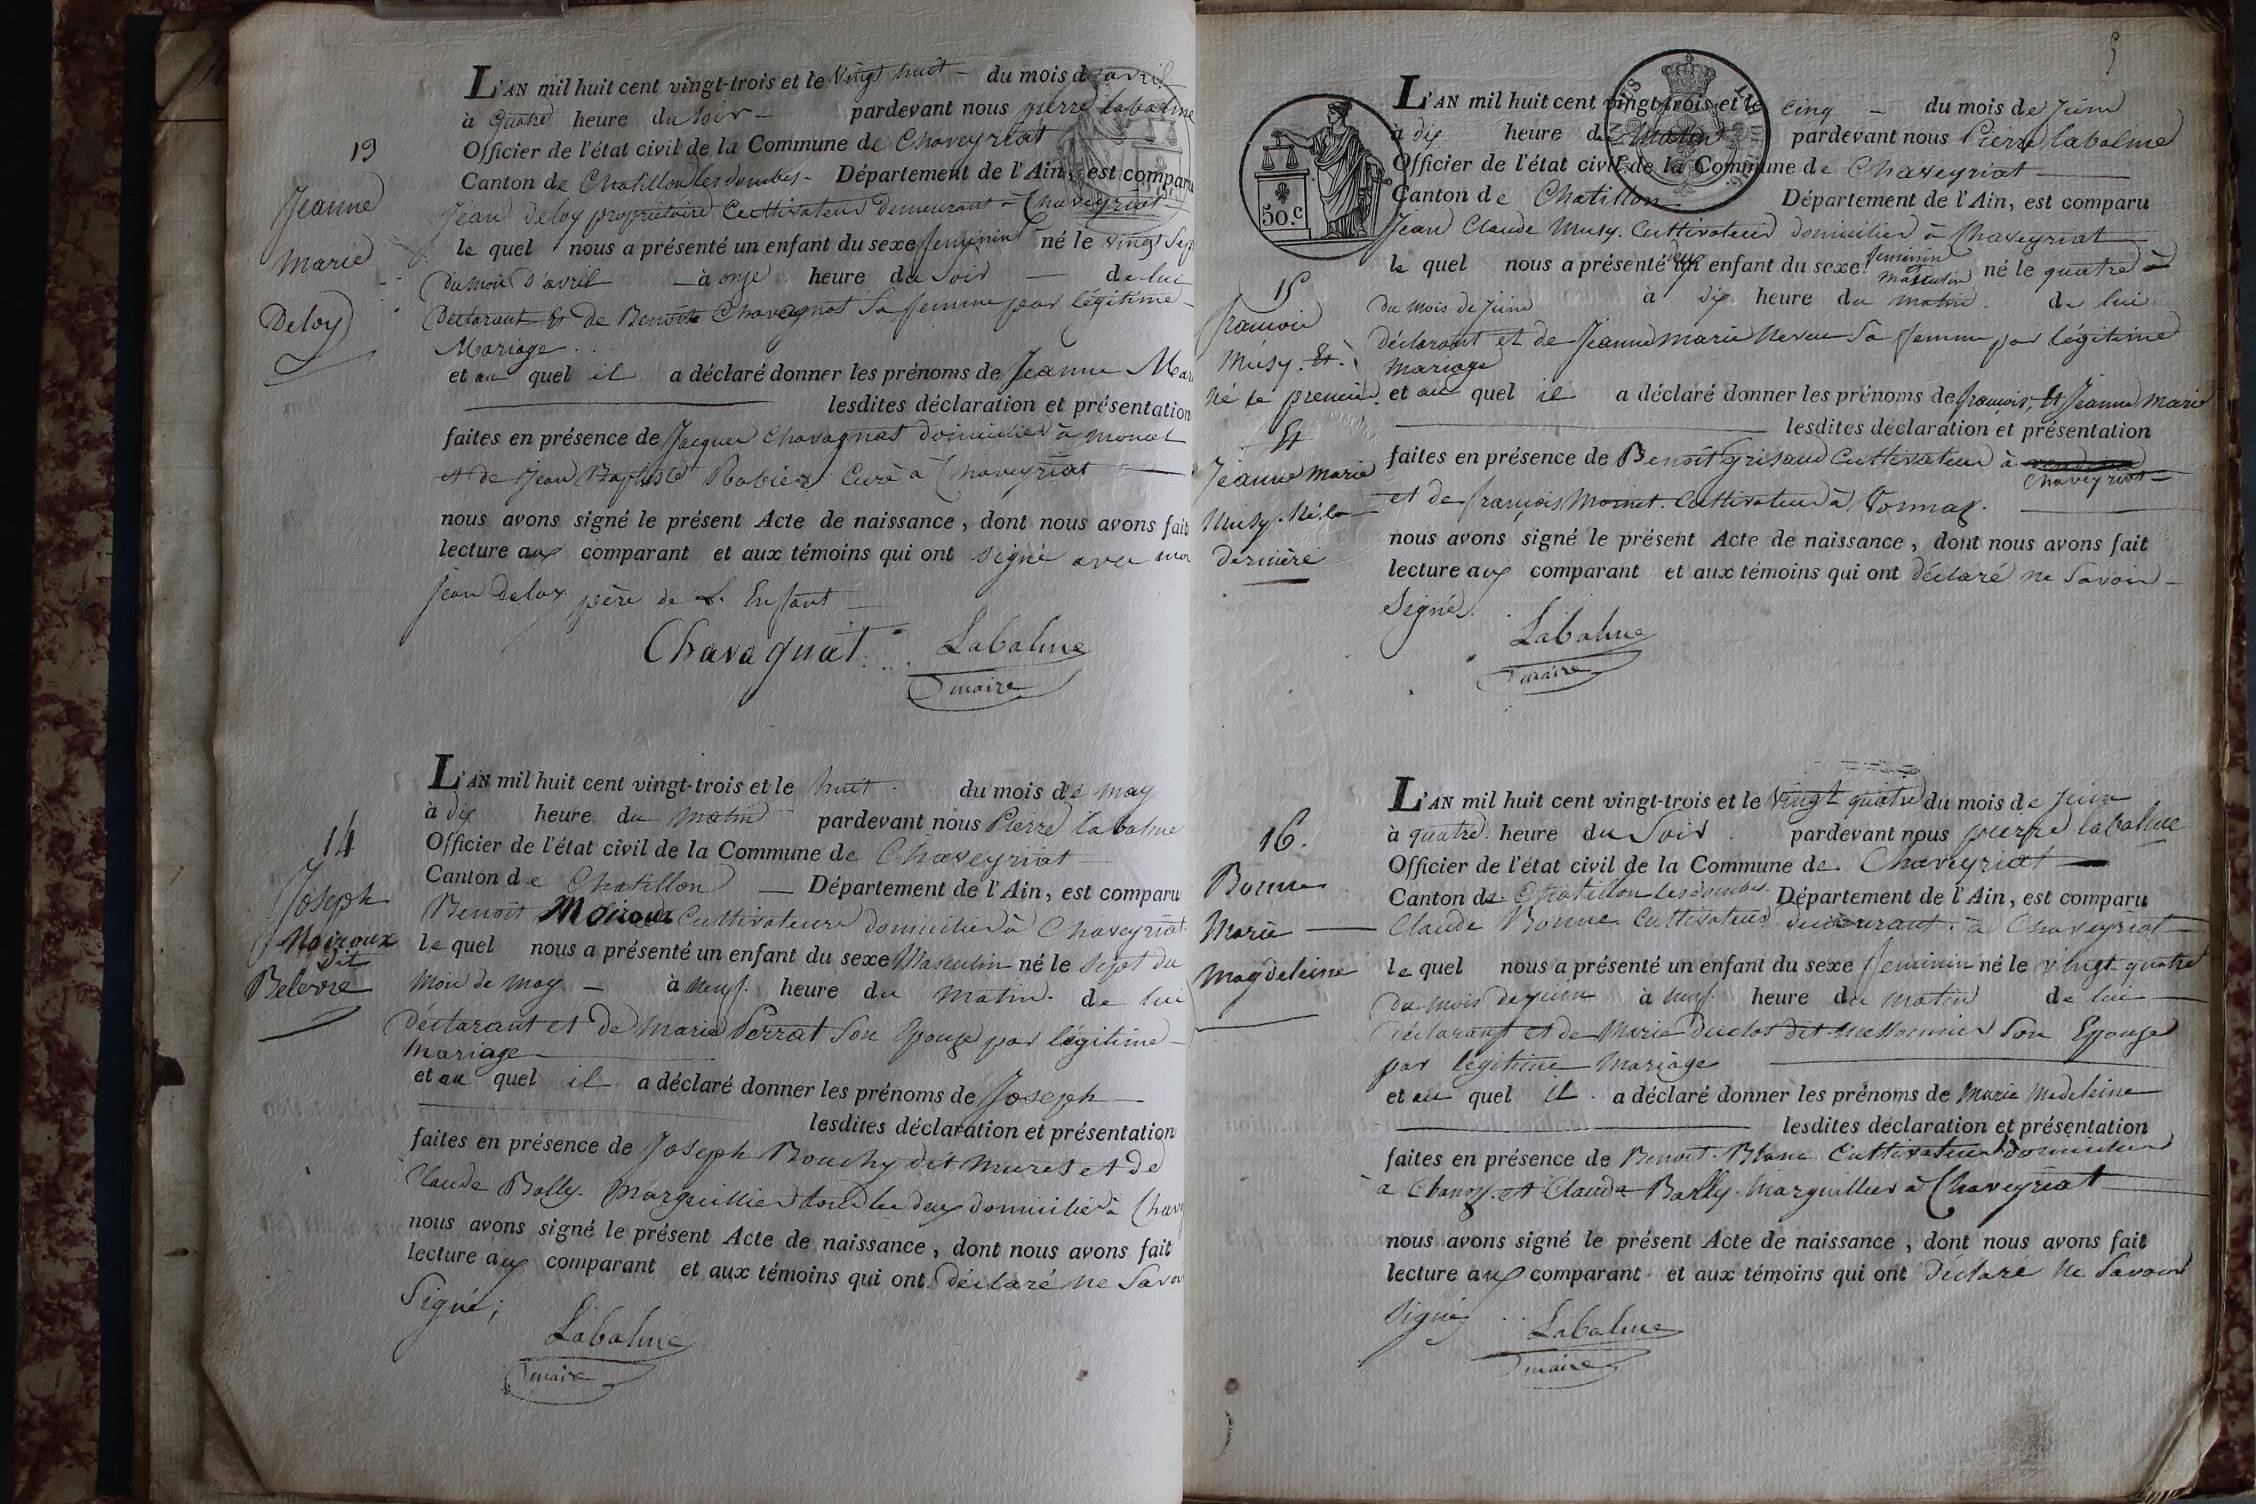 L'AN mil huit cent vingt-trois et le vingt huit - du mois d'avril
à quatre heure du soir - pardevant nous pierre labalme
Officier de l'état civil de la Commune de Chaveyriat
Canton de Chatillon les dombes - Département de l'Ain, est comparu
Jean Deloy propriétaire Cultivateur demeurant à Chaveyriat
le quel nous a présenté un enfant du sexe feminin né le vingt Sept
du mois d'avril - à onze heure du soir - de lui
Déclarant Et de Benoite Chavagnat Sa femme par légitime
Mariage.
et au quel il a déclaré donner les prénoms de Jeanne Mar
lesdites déclaration et présentation
faites en présence de Jacques Chavagnat domicilié à moncet
et de Jean Baptiste Robier Curé à Chaveyriat
nous avons signé le présent Acte de naissance, dont nous avons fait
lecture aux comparant et aux témoins qui ont signé avec moi
jean Deloy père de L. Enfant
Chavagnat Labalme
maire
19
Jeanne
Marie
Deloy
L'AN mil huit cent vingt-trois et le huit du mois de may
à dix heure du matin pardevant nous Pierre labalme
Officier de l'état civil de la Commune de Chaveyriat
Canton de Chatillon - Département de l'Ain, est comparu
Benoit Moiroux Cultivateur domicilié à Chaveyriat
le quel nous a présenté un enfant du sexe Masculin né le Sept du
Mois de may - à neuf heure du matin. de lui
déclarant et de Marie Perrat Son Epouze par légitime
mariage
et au quel il a déclaré donner les prénoms de Joseph
lesdites déclaration et présentation
faites en présence de Joseph Bouchy dit Muret et de
Claude Bolly. Marguillier tous les deux domicilié à Chav
nous avons signé le présent Acte de naissance, dont nous avons fait
lecture aux comparant et aux témoins qui ont déclaré ne Savoir
Signé;
Labalme
maire
14
Joseph
Moiroux
dit
Belevre
5
50.C
L'AN mil huit cent vingt-trois et le cinq - du mois de Juin
à dix heure du Matin pardevant nous Pierre labalme
Officier de l'état civil de la Commune de Chaveyriat
Canton de Chatillon Département de l'Ain, est comparu
Jean Claude Musy. Cultivateur domicilier à Chaveyriat
le quel nous a présenté deux enfant du sexe feminin et masculin né le quatre
du mois de Juin à dix heure du matin. de lui
déclarant et de Jeanne Marie Neveu Sa femme par légitime
Mariage
et au quel il a déclaré donner les prénoms de françois, Et Jeanne Marie
lesdites déclaration et présentation
faites en présence de Benoit Grisaud Cultivateur à Chaveyriat
et de françois Moinet. Cultivateur à Vonnas.
nous avons signé le présent Acte de naissance, dont nous avons fait
lecture aux comparant et aux témoins qui ont déclaré ne Savoir
Signé.
Labalme
maire
15
françois
Musy. Et.
Né le premier
Et
Jeanne Marie
Musy. Né la
dernière
L'AN mil huit cent vingt-trois et le Vingt quatre du mois de juin
à quatre heure du Soir pardevant nous pierre labalme
Officier de l'état civil de la Commune de Chaveyriat
Canton de Chatillon les dombes. Département de l'Ain, est comparu
Claude Bonne Cultivateur demeurant à Chaveyriat
le quel nous a présenté un enfant du sexe feminin né le vingt quatre
du mois de juin à neuf heure du matin de lui
déclarant et de Marie duclos dit messonnier Son Epouze
par légitime Mariage
et au quel il a déclaré donner les prénoms de Marie Madeleine
lesdites déclaration et présentation
faites en présence de Benoit Blanc Cultivateur domicilier
à Chanoz et Claude Bolly Marguillier à Chaveyriat
nous avons signé le présent Acte de naissance, dont nous avons fait
lecture aux comparant et aux témoins qui ont déclaré Ne Savoir
Signé
Labalme
maire
16.
Bonne
Marie
Magdeleine